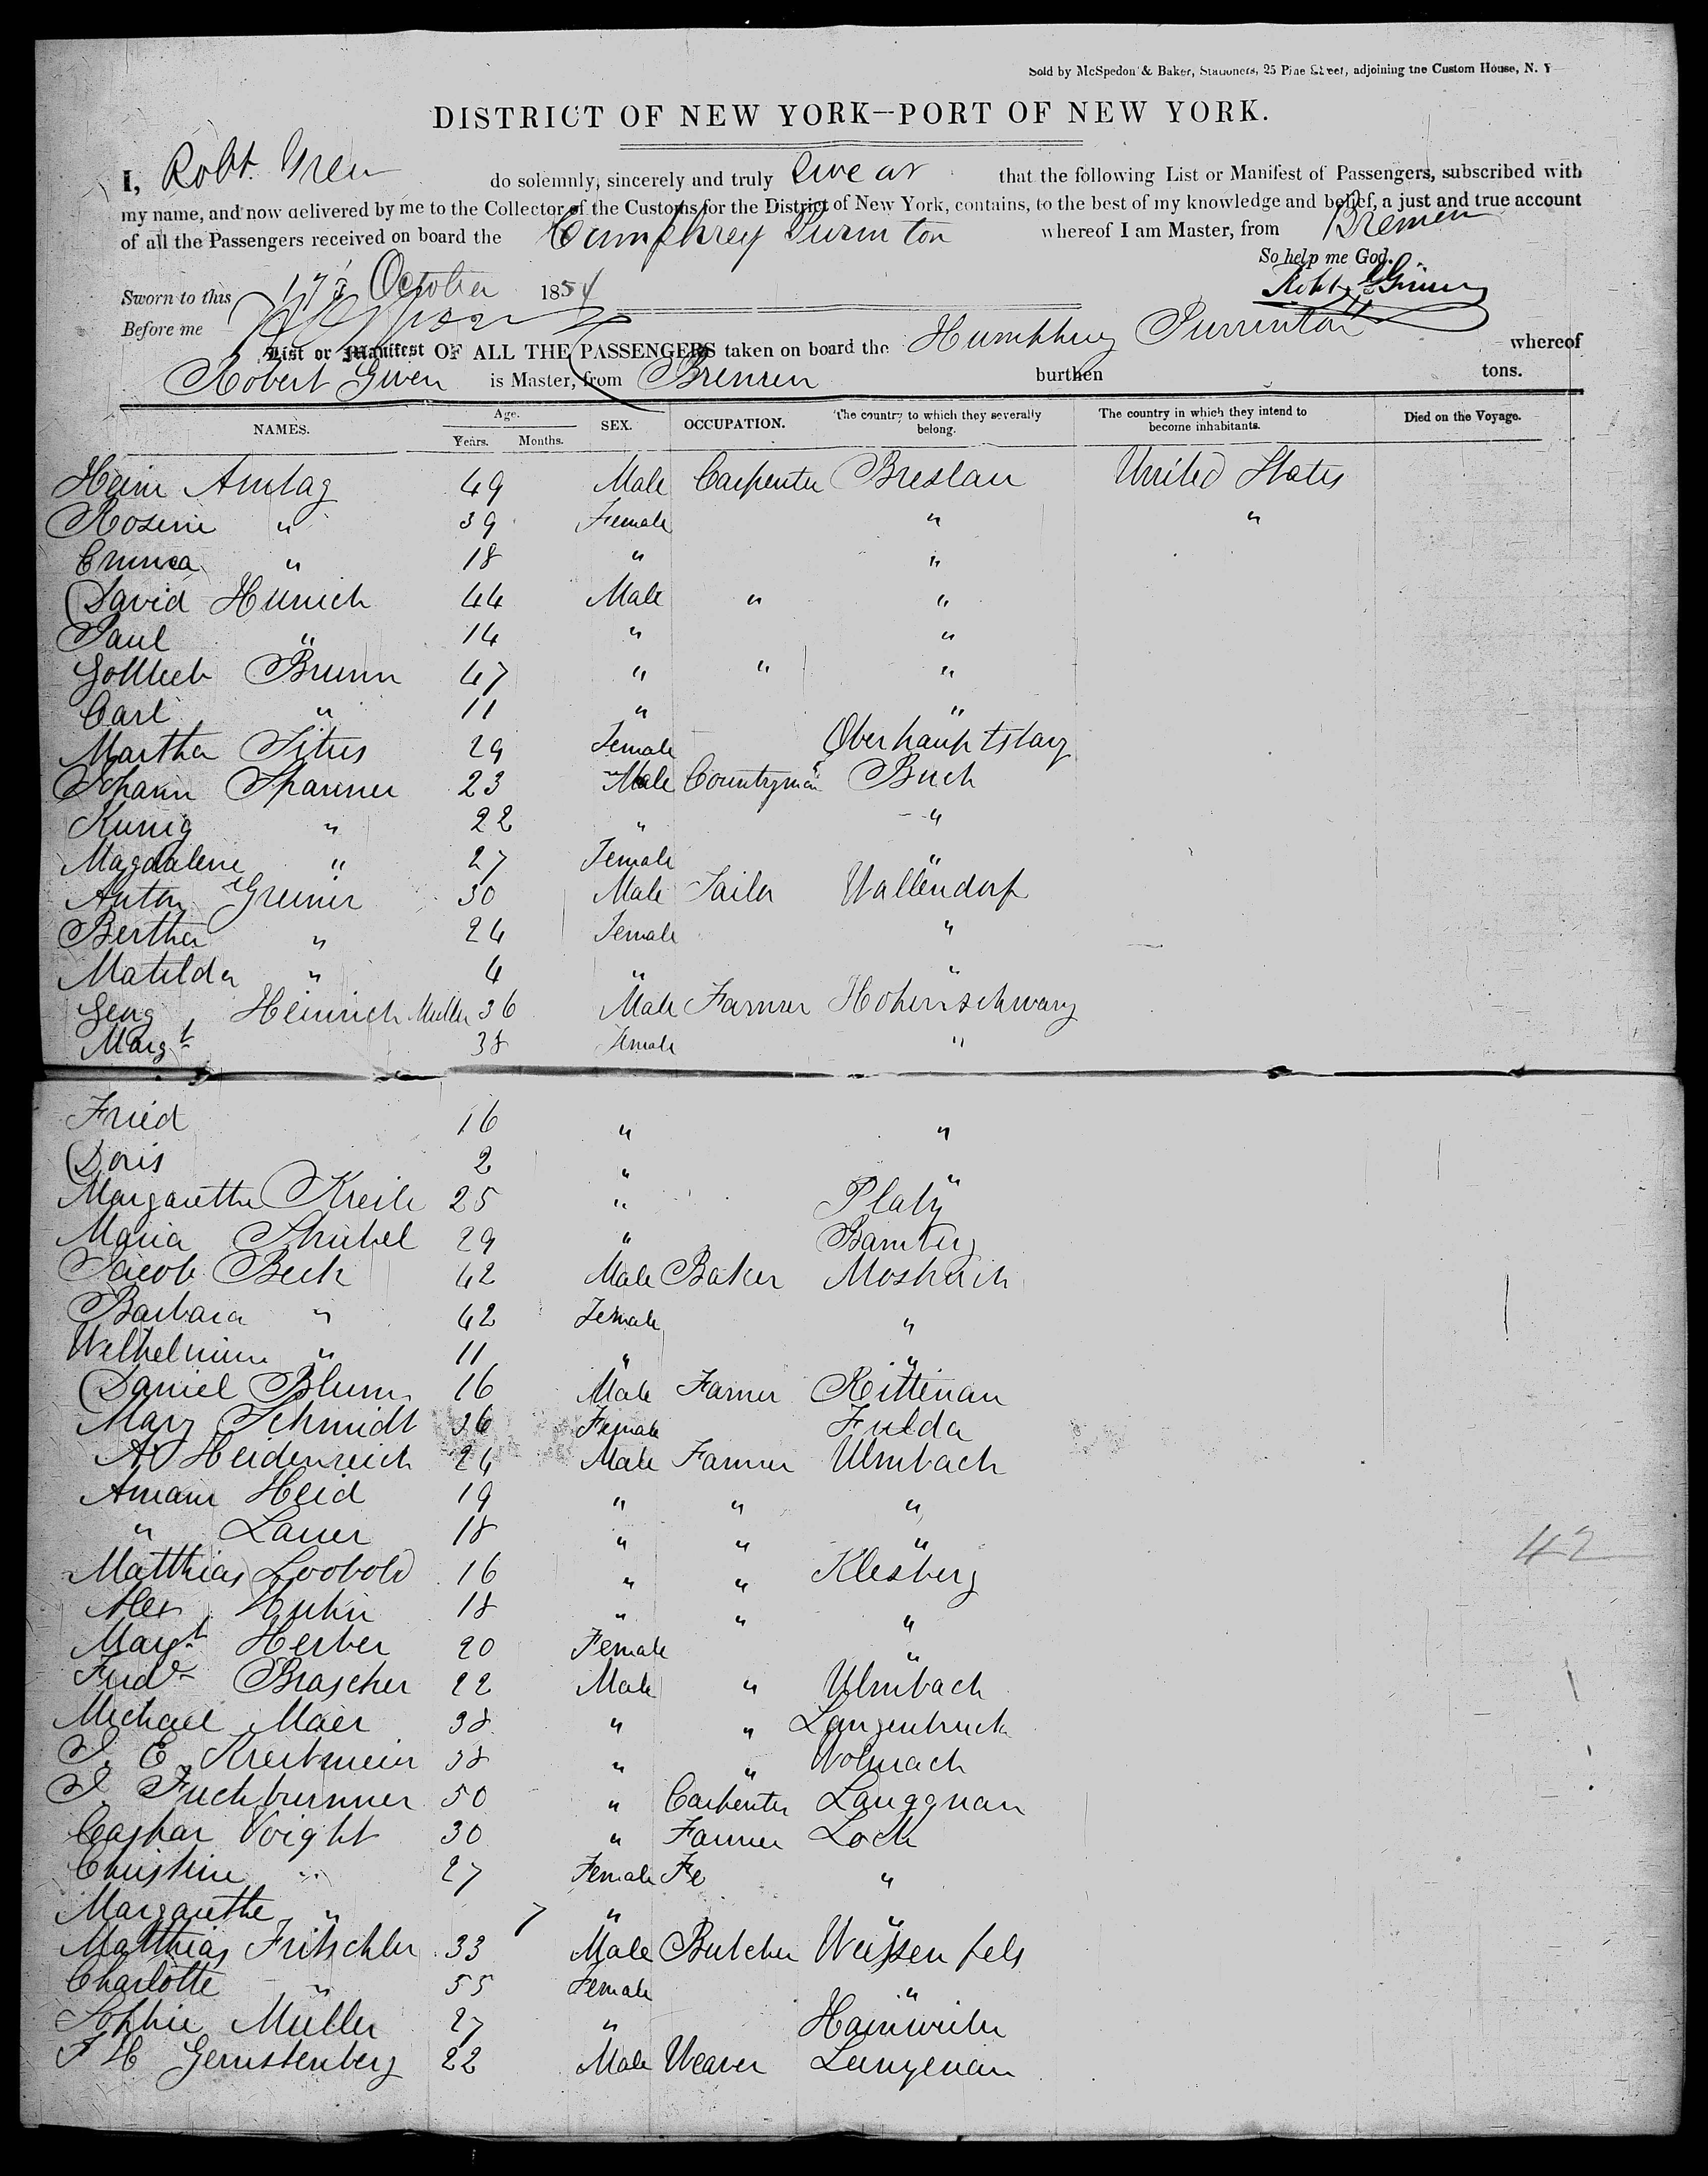 Sold by McSpedon & Baker, Stationers, 25 Pine Street, adjoining the Custom House, N. Y
DISTRICT OF NEW YORK—PORT OF NEW YORK.
I, Robt. do solemnly, sincerely and truly Swear that the following List or Manifest of Passengers, subscribed with
my name, and now delivered by me to the Collector of the Customs for the District of New York, contains, to the best of my knowledge and belief, a just and true account
of all the Passengers received on board the Humphrey Purinton whereof I am Master, from Bremen
So help me God.
Sworn to this 17 October 1854
Before me
List or Manifest OF ALL THE PASSENGERS taken on board the Humphrey Purrinton whereof
Robert Given is Master, from Bremen burthen tons.
NAMES. Age. Years. Months. SEX. OCCUPATION. The country to which they severally belong. The country in which they intend to become inhabitants. Died on the Voyage.
Heinr Amtag 49 Male Carpenter Breslau United States
Rosine " 39 Female " "
Emma " 18 " "
David Hunich 44 Male " "
Paul " 14 " "
Gottlieb Brunn 47 " " "
Carl " 11 " "
Martha Titus 29 Female
Johann Spanner 23 Male Countryman Buch
Kunig " 22 " "
Magdalene " 27 Female "
Anton Greiner 30 Male Tailor Wallendorf
Bertha " 24 Female "
Matilda " 4 " "
Georg Heinrich Muller 36 Male Farmer Hohenschwarz
Margt 38 Female "
Fried 16 " "
Doris 2 " "
Margarethe Kreile 25 " Platz
Maria Strubel 29 " Bamberg
Jacob Beck 42 Male Baker Mosbach
Barbara " 42 Female "
Welhelmine " 11 " "
Daniel Blum 16 Male Farmer Rittenau
Mary Schmidt 36 Female Fulda
A Heidenreich 24 Male Farmer Ulmbach
Amam Heid 19 " " "
" Lauer 18 " " "
Matthias Loobold 16 " " Klesberg
Alex Huhn 18 " " "
Margt Herber 20 Female "
Fredk Brascher 22 Male " Ulmbach
Michael Maier 38 " " Langenbruck
J. E Kreitmeier 38 " " Wolnach
J. Fuchbrunner 50 " Carpenter Langquan
Caspar Voight 30 " Farmer Loch
Christine " 27 Female Fe "
Margarethe " 7 " "
Matthias Fritschler 33 Male Butcher Weissenfels
Charlotte " 55 Female "
Sophie Müller 27 " Hainweiler
F H Gernstenberg 22 Male Weaver Langenau
42